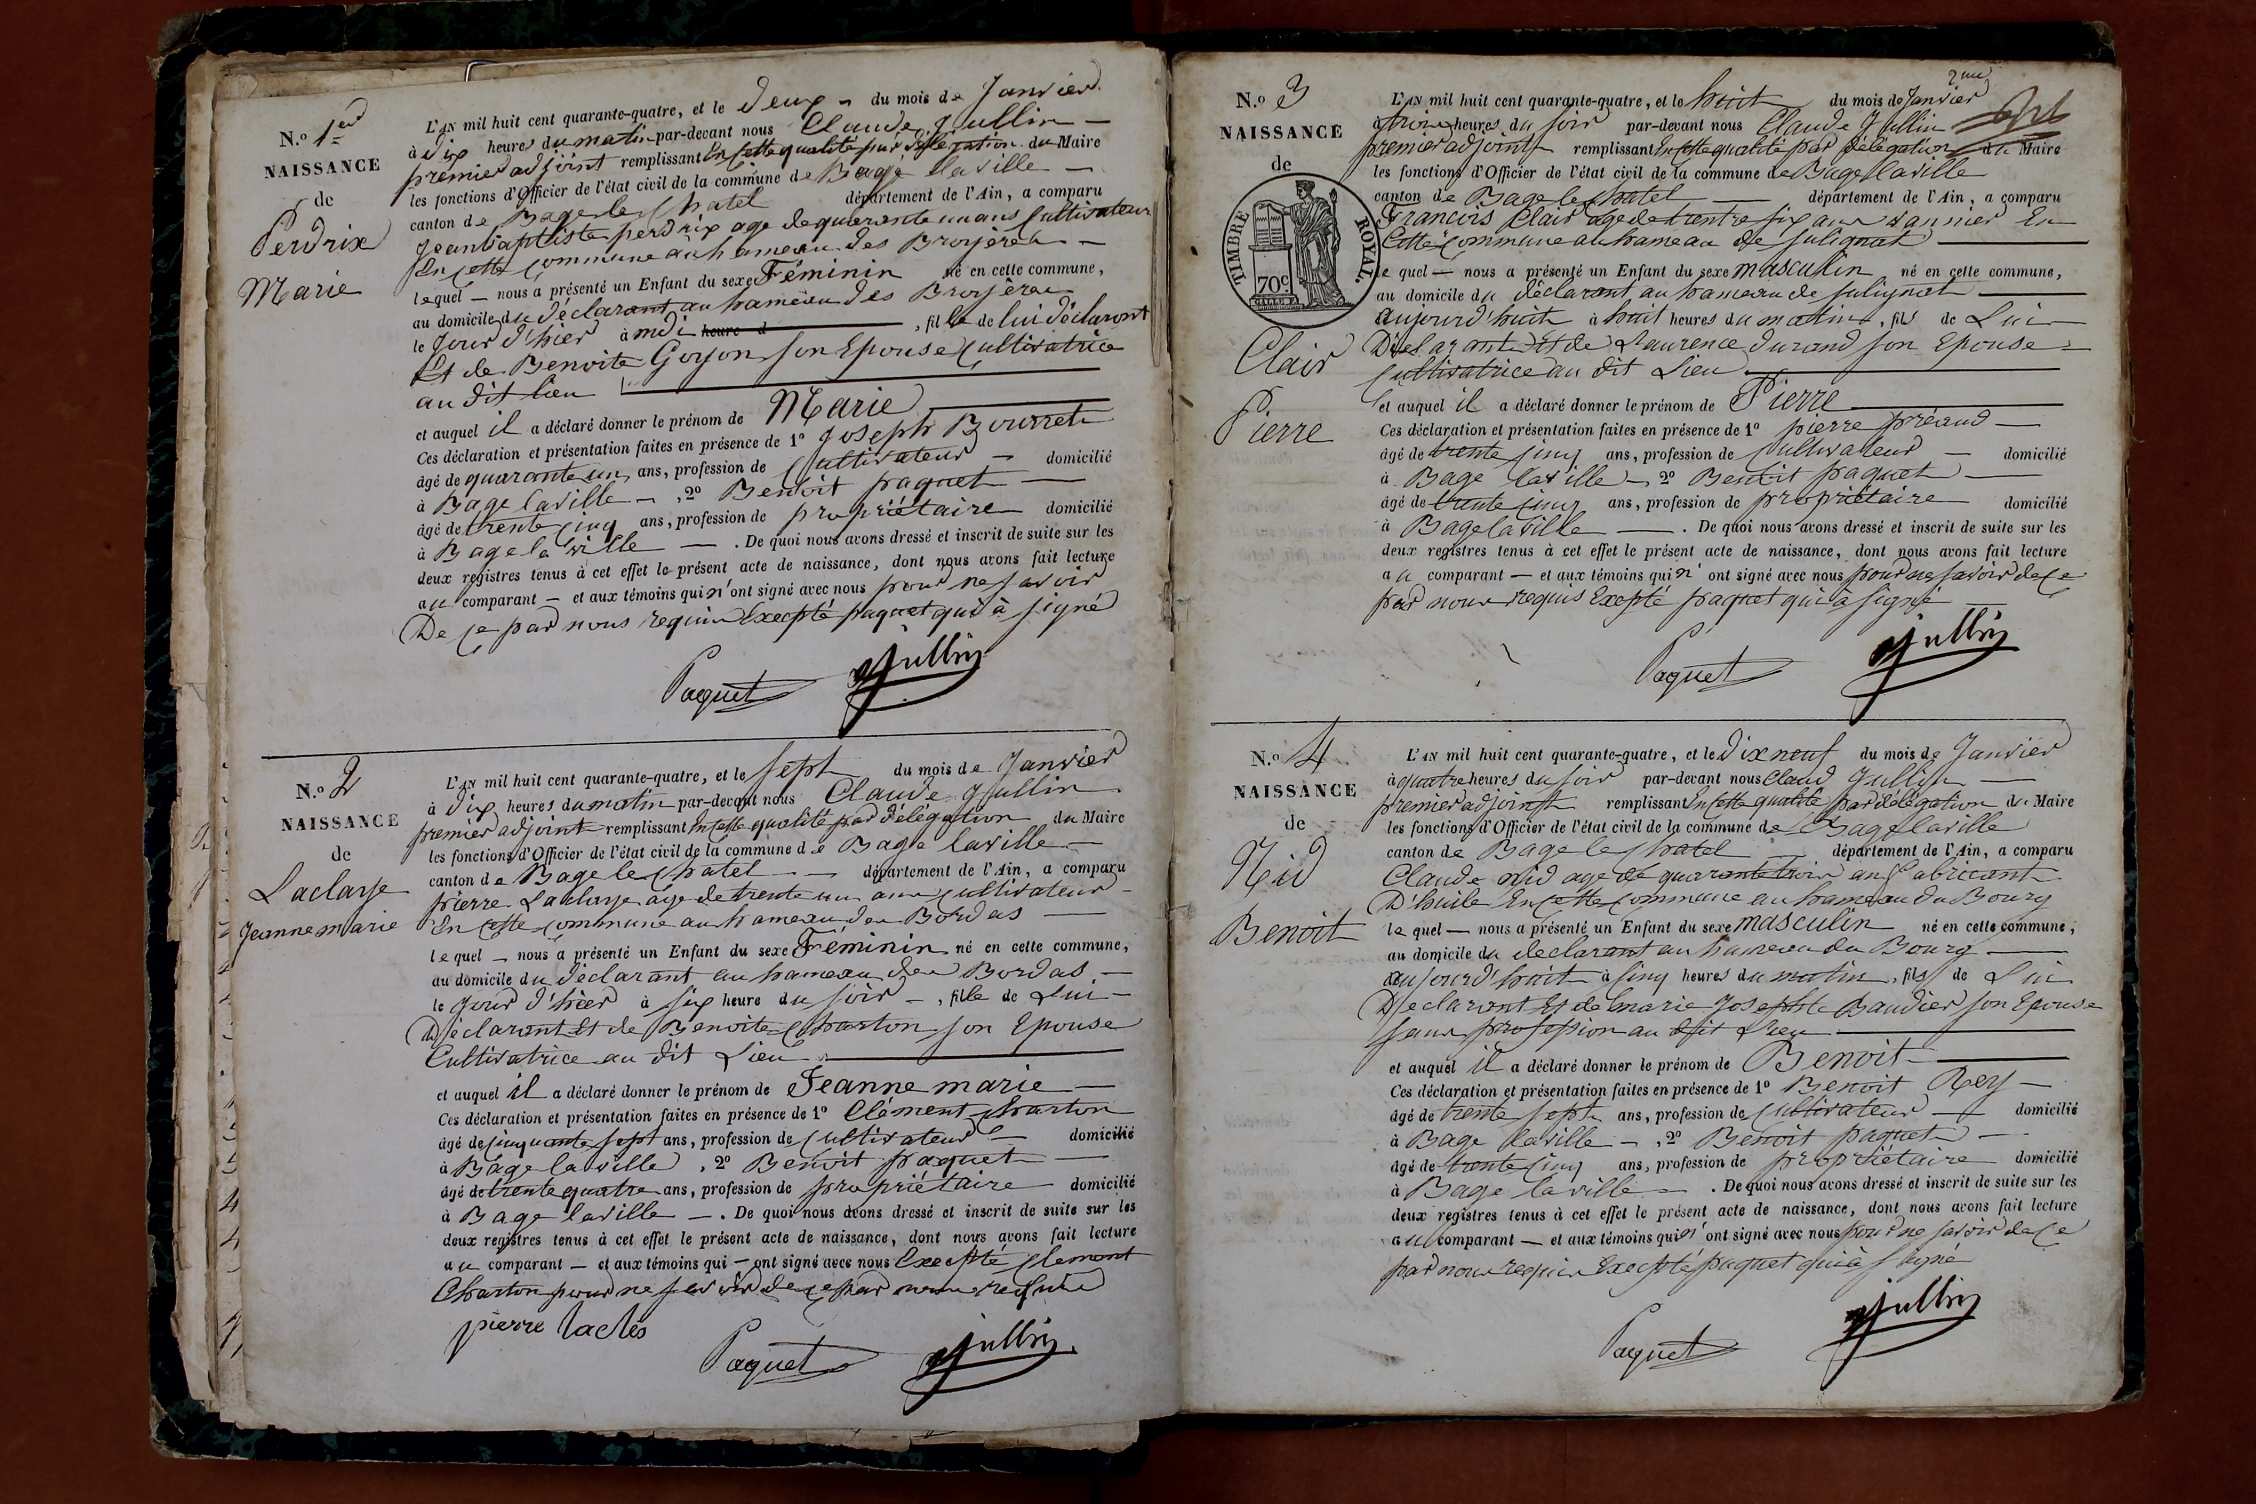 N.o 1er
NAISSANCE
de
Perdrix
Marie
L'AN mil huit cent quarante-quatre, et le deux du mois de Janvier
à dix heures du matin par-devant nous Claude Jullin
premier adjoint remplissant En cette qualité par délégation du Maire
les fonctions d'Officier de l'état civil de la commune de Bagé laville
canton de Bage le Chatel département de l'Ain, a comparu
Jeanbaptiste perdrix age de quarente un ans Cultivateur
En cette Commune au hameau des Broyères
lequel — nous a présenté un Enfant du sexe Féminin né en cette commune,
au domicile du déclarant au hameau des Broyères
le Jour d'hier à midi heure d , fille de lui déclarant
Et de Benoite Goyon son Epouse Cultivatrice
au dit lieu
et auquel il a déclaré donner le prénom de Marie
Ces déclaration et présentation faites en présence de 1o Joseph Bourret
âgé de quarante un ans, profession de Cultivateur — domicilié
à Bage laville — , 2o Benoit paquet —
âgé de trente cinq ans, profession de propriétaire domicilié
à Bage la ville — . De quoi nous avons dressé et inscrit de suite sur les
deux registres tenus à cet effet le présent acte de naissance, dont nous avons fait lecture
au comparant — et aux témoins qui n'ont signé avec nous pour ne savoir
De ce par nous requis Excepté paquet qui à signé
Paquet Jullin
N.o 2
NAISSANCE
de
Laclaye
Jeanne marie
L'AN mil huit cent quarante-quatre, et le sept du mois de Janvier
à dix heures du matin par-devant nous Claude Jullin
premier adjoint remplissant En cette qualité par délégation du Maire
les fonctions d'Officier de l'état civil de la commune de Bage laville —
canton de Bage le Chatel — département de l'Ain, a comparu
pierre Laclaye age de trente un ans cultivateur
En cette Commune au hameau des Bordas —
lequel — nous a présenté un Enfant du sexe Féminin né en cette commune,
au domicile du déclarant au hameau des Bordas —
le Jour d'hier à six heure du soir — , fille de Lui —
Déclarant Et de Benoite Charton son Epouse
Cultivatrice au dit Lieu
et auquel il a déclaré donner le prénom de Jeanne marie —
Ces déclaration et présentation faites en présence de 1o Clément Charton
âgé de cinquante sept ans, profession de Cultivateur — domicilié
à Bage la ville , 2o Benoit paquet —
âgé de trente quatre ans, profession de propriétaire domicilié
à Bage laville — . De quoi nous avons dressé et inscrit de suite sur les
deux registres tenus à cet effet le présent acte de naissance, dont nous avons fait lecture
au comparant — et aux témoins qui — ont signé avec nous Excepté Clement
Charton pour ne savoir de ce par nous requis
pierre laclés
Paquet Jullin
2me
N.o 3
NAISSANCE
de
TIMBRE ROYAL.
70c
Clair
Pierre
L'AN mil huit cent quarante-quatre, et le huit du mois de Janvier
à trois heures du soir par-devant nous Claude Jullin
premier adjoint remplissant En cette qualité par délégation du Maire
les fonctions d'Officier de l'état civil de la commune de Bage laville
canton de Bage le Chatel — département de l'Ain, a comparu
Francois Clair age de trentre six ans vannier En
Cette Commune au hameau de Julignat
le quel — nous a présenté un Enfant du sexe masculin né en cette commune,
au domicile du déclarant au hameau de Julignat
aujourd'huit à huit heures du matin , fils de Lui
Déclarant Et de Laurence Durand son Epouse
Cultivatrice au dit Lieu
et auquel il a déclaré donner le prénom de Pierre
Ces déclaration et présentation faites en présence de 1o pierre préaud —
âgé de trente cinq ans, profession de Cultivateur — domicilié
à Bage laville — 2o Benoit paquet —
âgé de trente cinq ans, profession de propriétaire domicilié
à Bage laville — . De quoi nous avons dressé et inscrit de suite sur les
deux registres tenus à cet effet le présent acte de naissance, dont nous avons fait lecture
au comparant — et aux témoins qui n'ont signé avec nous pour ne savoir de ce
par nous requis Excepté paquet qui à signé
Paquet Jullin
N.o 4
NAISSANCE
de
Nid
Benoit
L'AN mil huit cent quarante-quatre, et le dix neuf du mois de Janvier
à quatre heures du soir par-devant nous Claud Jullin —
premier adjoint remplissant En cette qualité par délégation du Maire
les fonctions d'Officier de l'état civil de la commune de Bage laville
canton de Bage le Chatel — département de l'Ain, a comparu
Claude nid age de quarante trois ans fabricant
D'huile En cette Commune au hameau du Bourg
le quel — nous a présenté un Enfant du sexe masculin né en cette commune,
au domicile du declarant au hameau du Bourg —
aujourd'huit à cinq heures du matin , fils de Lui
Declarant Et de marie Josephte Baudier son Epouse
sans profession au dit Lieu
et auquel il a déclaré donner le prénom de Benoit
Ces déclaration et présentation faites en présence de 1o Benoit Rey —
âgé de trente sept ans, profession de Cultivateur — domicilié
à Bage laville — , 2o Benoit paquet —
âgé de trente cinq ans, profession de propriétaire domicilié
à Bage la ville — . De quoi nous avons dressé et inscrit de suite sur les
deux registres tenus à cet effet le présent acte de naissance, dont nous avons fait lecture
au comparant — et aux témoins qui n'ont signé avec nous pour ne savoir de ce
par nous requis Excepté paquet qui à signé
Paquet Jullin